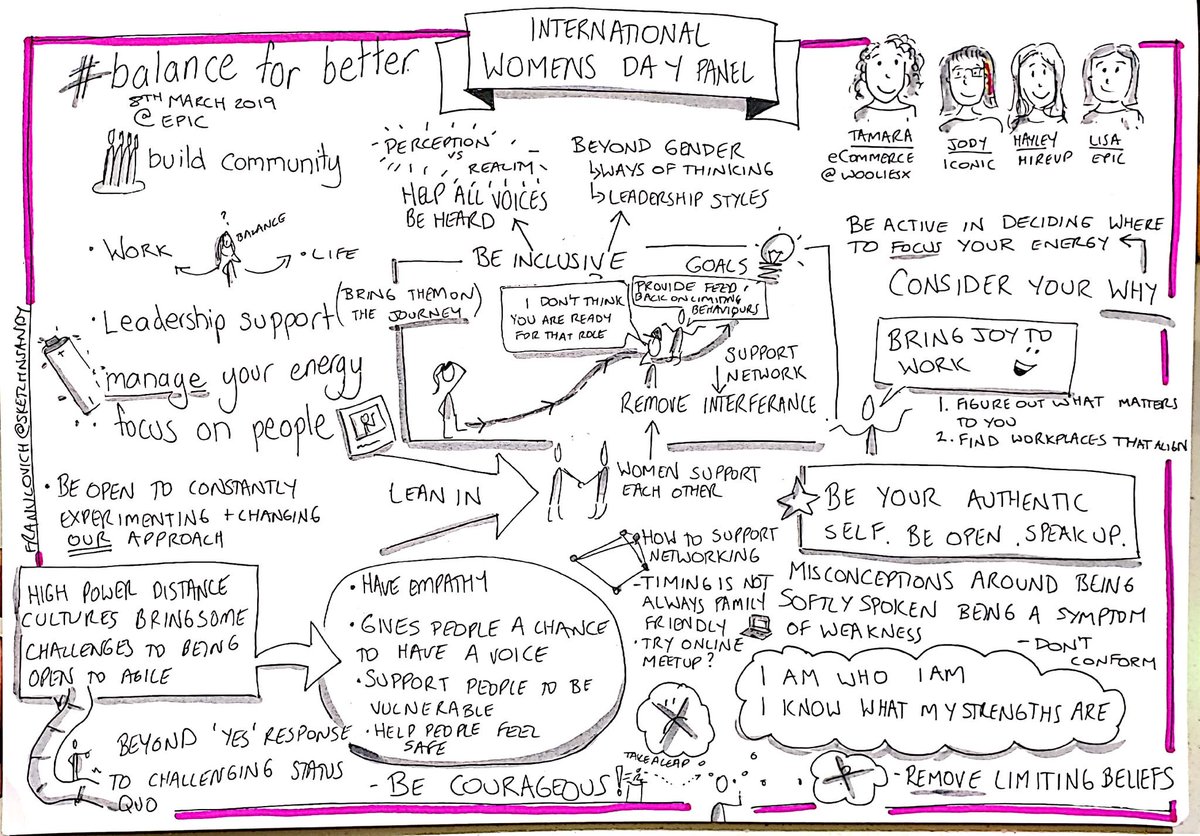 INTERNATIONAL
WOMENS DAY PANEL
#balance for better.
8TH MARCH 2019
@ EPIC
build community
TAMARA
eCOMMERCE
@WOOLIESX
JODY
ICONIC
HAYLEY
HIREUP
LISA
EPIC
PERCEPTION
VS
REALITY
HELP ALL VOICES
BE HEARD
BEYOND GENDER
WAYS OF THINKING
LEADERSHIP STYLES
BE INCLUSIVE
BE ACTIVE IN DECIDING WHERE
TO FOCUS YOUR ENERGY
CONSIDER YOUR WHY
• WORK
?
BALANCE
• LIFE
• Leadership support
(BRING THEM ON
THE JOURNEY)
manage your energy
focus on people
GOALS
I DON'T THINK
YOU ARE READY
FOR THAT ROLE
PROVIDE FEED
BACK ON LIMITING
BEHAVIOURS
SUPPORT
NETWORK
REMOVE INTERFERANCE
BRING JOY TO
WORK
1. FIGURE OUT WHAT MATTERS
TO YOU
2. FIND WORKPLACES THAT ALIGN
• BE OPEN TO CONSTANTLY
EXPERIMENTING + CHANGING
OUR APPROACH
LEAN IN
WOMEN SUPPORT
EACH OTHER
BE YOUR AUTHENTIC
SELF. BE OPEN. SPEAK UP.
HIGH POWER DISTANCE
CULTURES BRING SOME
CHALLENGES TO BEING
OPEN TO AGILE
• HAVE EMPATHY
• GIVES PEOPLE A CHANCE
TO HAVE A VOICE
• SUPPORT PEOPLE TO BE
VULNERABLE
• HELP PEOPLE FEEL
SAFE
HOW TO SUPPORT
NETWORKING
- TIMING IS NOT
ALWAYS FAMILY
FRIENDLY
• TRY ONLINE
MEETUP?
MISCONCEPTIONS AROUND BEING
SOFTLY SPOKEN BEING A SYMPTOM
OF WEAKNESS
- DON'T
CONFORM
I AM WHO I AM
I KNOW WHAT MY STRENGTHS ARE
BEYOND 'YES' RESPONSE
TO CHALLENGING STATUS
QUO
- BE COURAGEOUS!
TAKE A LEAP
- REMOVE LIMITING BELIEFS